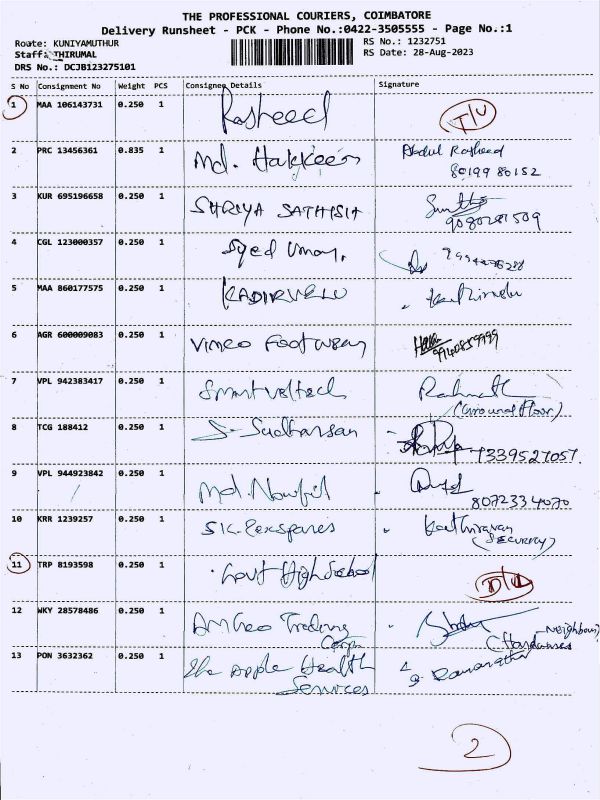 THE PROFESSIONAL COURIERS, COIMBATORE
Delivery Runsheet - PCK - Phone No.:0422-3505555 - Page No.:1
Roate: KUNIYAMUTHUR RS No.: 1232751
Staff: THIRUMAL RS Date: 28-Aug-2023
DRS No.: DCJB123275101
S No Consignment No Weight PCS Consignee Details Signature
1 MAA 106143731 0.250 1 Rasheed
2 PRC 13456361 0.835 1 Md. Hakkeem Abdul Rasheed
80199 80152
3 KUR 695196658 0.250 1 SHRIYA SATHISH
9080281509
4 CGL 123000357 0.250 1 Syed Umar.
5 MAA 860177575 0.250 1 KADIRVELU
6 AGR 600009083 0.250 1 Vimeo Footwear
9940859999
7 VPL 942383417 0.250 1 Smartvoltech
(Ground Floor)
8 TCG 188412 0.250 1 S. Sudharsan
7339527057
9 VPL 944923842 0.250 1 Md. Nowfil
8072334070
10 KRR 1239257 0.250 1 Kathiravan
(SECURITY)
11 TRP 8193598 0.250 1 Govt High School D/L
12 WKY 28578486 0.250 1 Trading (Neighbour)
13 PON 3632362 0.250 1 The Apple Health
Services
2